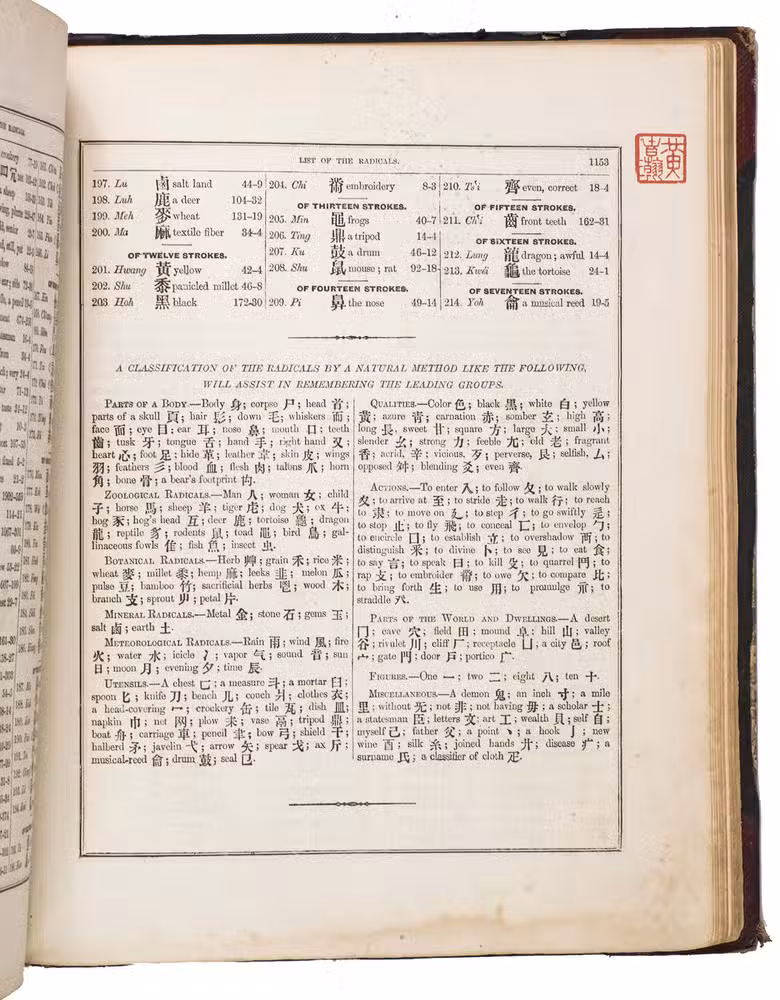 LIST OF THE RADICALS.
1153
197. Lu 鹵 salt land 44-9
198. Luh 鹿 a deer 104-32
199. Meh 麥 wheat 131-19
200. Ma 麻 textile fiber 34-4
OF TWELVE STROKES.
201. Hwang 黃 yellow 42-4
202. Shu 黍 panicled millet 46-8
203 Hoh 黑 black 172-30
204. Chi 黹 embroidery 8-3
OF THIRTEEN STROKES.
205. Min 黽 frogs 40-7
206. Ting 鼎 a tripod 14-4
207. Ku 鼓 a drum 46-12
208. Shu 鼠 mouse ; rat 92-18
OF FOURTEEN STROKES.
209. Pi 鼻 the nose 49-14
210. Ts'i 齊 even, correct 18-4
OF FIFTEEN STROKES.
211. Ch'i 齒 front teeth 162-31
OF SIXTEEN STROKES.
212. Lung 龍 dragon ; awful 14-4
213. Kwéi 龜 the tortoise 24-1
OF SEVENTEEN STROKES.
214. Yoh 龠 a musical reed 19-5
A CLASSIFICATION OF THE RADICALS BY A NATURAL METHOD LIKE THE FOLLOWING,
WILL ASSIST IN REMEMBERING THE LEADING GROUPS.
PARTS OF A BODY.—Body 身; corpse 尸; head 首;
parts of a skull 頁; hair 髟; down 毛; whiskers 而;
face 面; eye 目; ear 耳; nose 鼻; mouth 口; teeth
齒; tusk 牙; tongue 舌; hand 手; right hand 又;
heart 心; foot 足; hide 革; leather 韋; skin 皮; wings
羽; feathers 彡; blood 血; flesh 肉; talons 爪; horn
角; bone 骨; a bear's footprint 禸.
ZOOLOGICAL RADICALS.—Man 人; woman 女; child
子; horse 馬; sheep 羊; tiger 虍; dog 犬; ox 牛;
hog 豕; hog's head 彑; deer 鹿; tortoise 龜; dragon
龍; reptile 豸; rodents 鼠; toad 黽; bird 鳥; gal-
linaceous fowls 隹; fish 魚; insect 虫.
BOTANICAL RADICALS.—Herb 艸; grain 禾; rice 米;
wheat 麥; millet 黍; hemp 麻; leeks 韭; melon 瓜;
pulse 豆; bamboo 竹; sacrificial herbs 鬯; wood 木;
branch 支; sprout 屮; petal 片.
MINERAL RADICALS.—Metal 金; stone 石; gems 玉;
salt 鹵; earth 土.
METEOROLOGICAL RADICALS.—Rain 雨; wind 風; fire
火; water 水; icicle 冫; vapor 气; sound 音; sun
日; moon 月; evening 夕; time 辰.
UTENSILS.—A chest 匚; a measure 斗; a mortar 臼;
spoon 匕; knife 刀; bench 几; couch 爿; clothes 衣;
a head-covering 冖; crockery 缶; tile 瓦; dish 皿;
napkin 巾; net 网; plow 耒; vase 鬲; tripod 鼎;
boat 舟; carriage 車; pencil 聿; bow 弓; shield 干;
halberd 矛; javelin 弋; arrow 矢; spear 戈; ax 斤;
musical-reed 龠; drum 鼓; seal 卩.
QUALITIES.—Color 色; black 黑; white 白; yellow
黃; azure 青; carnation 赤; somber 玄; high 高;
long 長, sweet 甘; square 方; large 大; small 小;
slender 幺; strong 力; feeble 尢; old 老; fragrant
香; acrid, 辛; vicious, 歹; perverse, 艮; selfish, 厶;
opposed 舛; blending 爻; even 齊.
ACTIONS.—To enter 入; to follow 夂; to walk slowly
夊; to arrive at 至; to stride 走; to walk 行; to reach
to 隶; to move on 廴; to step 彳; to go swiftly 辵;
to stop 止; to fly 飛; to conceal 匸; to envelop 勹;
to encircle 囗; to establish 立; to overshadow 襾; to
distinguish 釆; to divine 卜; to see 見; to eat 食;
to say 言; to speak 曰; to kill 殳; to quarrel 鬥; to
rap 攴; to embroider 黹; to owe 欠; to compare 比;
to bring forth 生; to use 用; to promulge 示; to
straddle 癶.
PARTS OF THE WORLD AND DWELLINGS.—A desert
冂; cave 穴; field 田; mound 阜; hill 山; valley
谷; rivulet 川; cliff 厂; receptacle 凵; a city 邑; roof
宀; gate 門; door 戶; portico 广.
FIGURES.—One 一; two 二; eight 八; ten 十.
MISCELLANEOUS.—A demon 鬼; an inch 寸; a mile
里; without 无; not 非; not having 毋; a scholar 士;
a statesman 臣; letters 文; art 工; wealth 貝; self 自;
myself 己; father 父; a point 丶; a hook 亅; new
wine 酉; silk 糸; joined hands 廾; disease 疒; a
surname 氏; a classifier of cloth 疋.